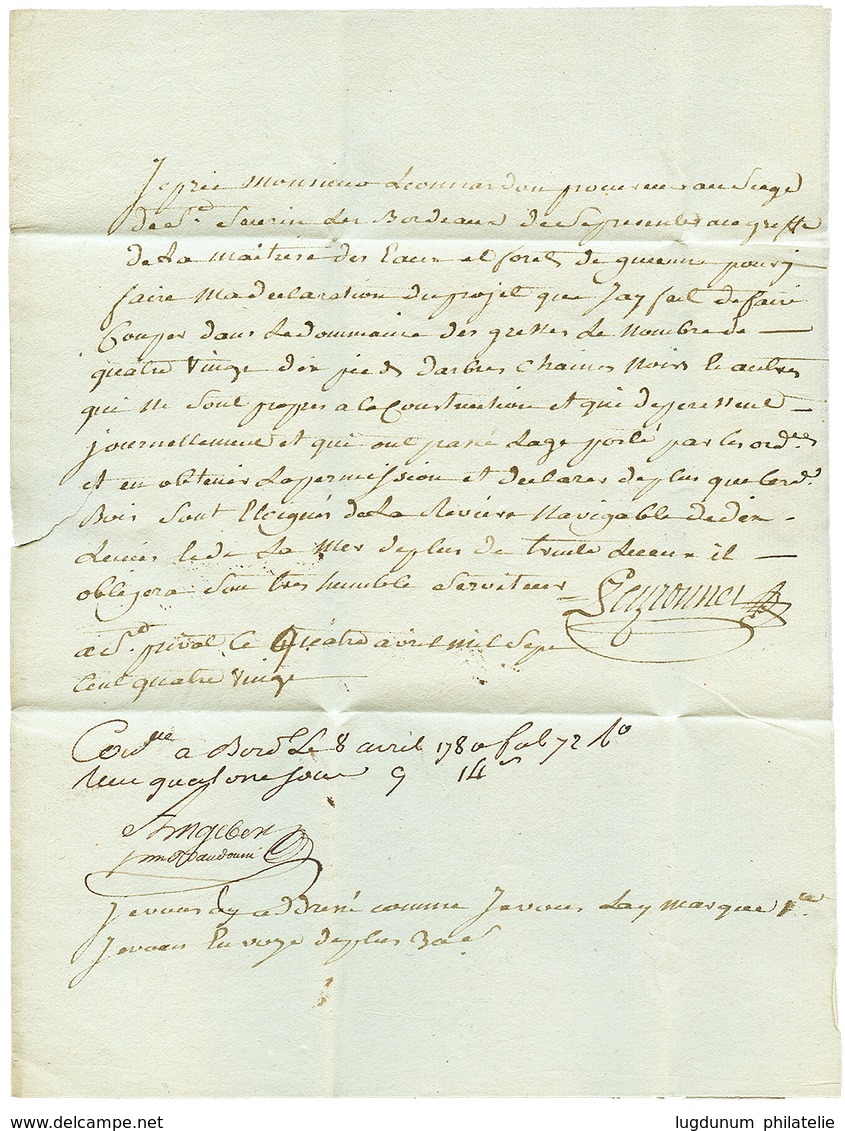 Je prie Monsieur Leonnardon procureur au Siege
de St Seurin Les Bordeaux de Se presenter au greffe
de La maitrise des Eaux et forets de guienne pour y
faire Ma declaration du projet que Jay fait de faire
Couper dans Le dommaine des gresses Le Nombre de
quatre Vingt dix pieds darbres Chaines Noirs et autres
qui ne Sont propres a la Construction et qui deperissent
Journellement et qui ont passé Lage porté par les ordces
et en obtenir La permission et declarer de plus que Les d.
Bois Sont Eloignés de La Reviere Navigable de dix
Lieues et de La Mer de plus de trente Lieux il
obligera Son tres humble Serviteur Peyronnet
a St. prival Ce Quatre avril Mil Sept
Cent quatre Vingt
Conlle a Bordx Le 8 avril 1780 fol 72 Ro
Reçu quatorze sous 9 14s
Jevous ay addressé comme Jevous Lay marqué
Jevous Envoye deplus
lugdunum philatelie